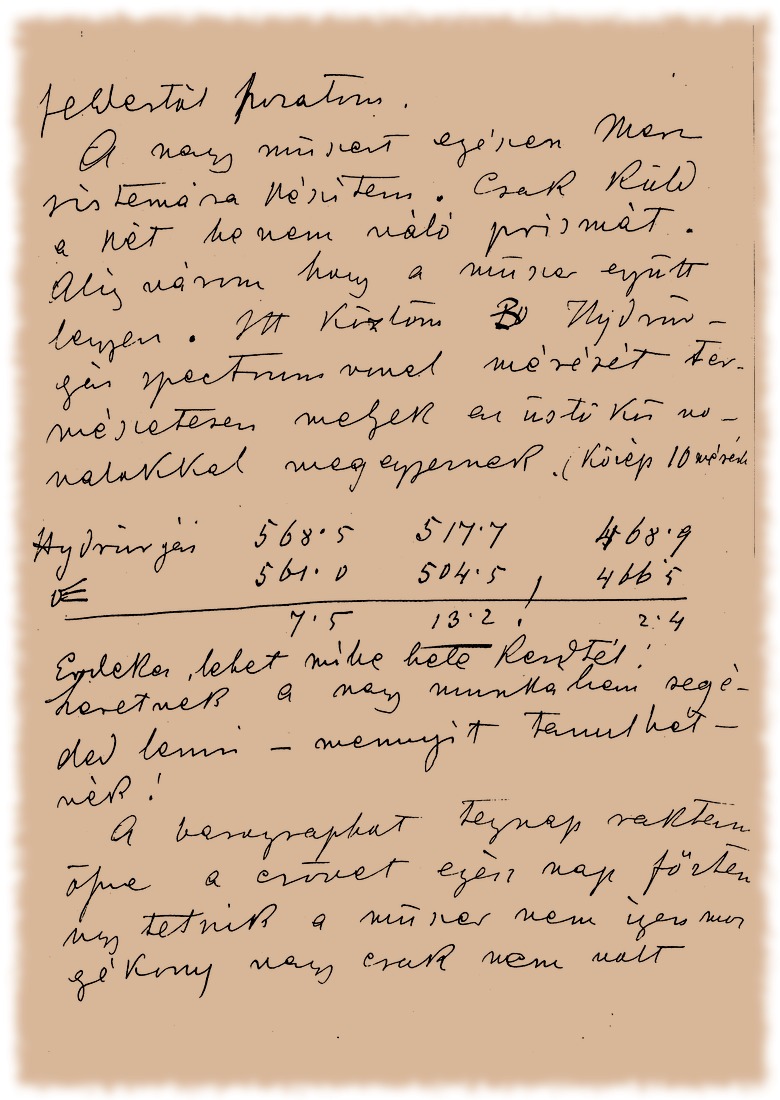 A nagy müszert egészen Merz
sistemára készitem. Csak Küld
a két ha nem váló prismát.
Alig várom hogy a müszer együtt
legyen. Itt Közlöm Hydrür-
gáz spectrum vonal mérését ter-
mészetesen melyek az üstökös vo-
nalakkal megegyeznek. (Közép 10 mérés
Hydrürgáz 568.5 517.7 468.9
561.0 504.5 466.5
7.5 13.2 ! 2.4
Érdekes, lehet mibe bele Kezdtél!
Szeretnék a nagy munkában segé-
ded lenni – mennyit tanulhat-
nék!
A barographot tegnap raktam
össze a csövet egész nap főztem
ugy tetszik a müszer nem igen moz
gékony vagy csak nem volt